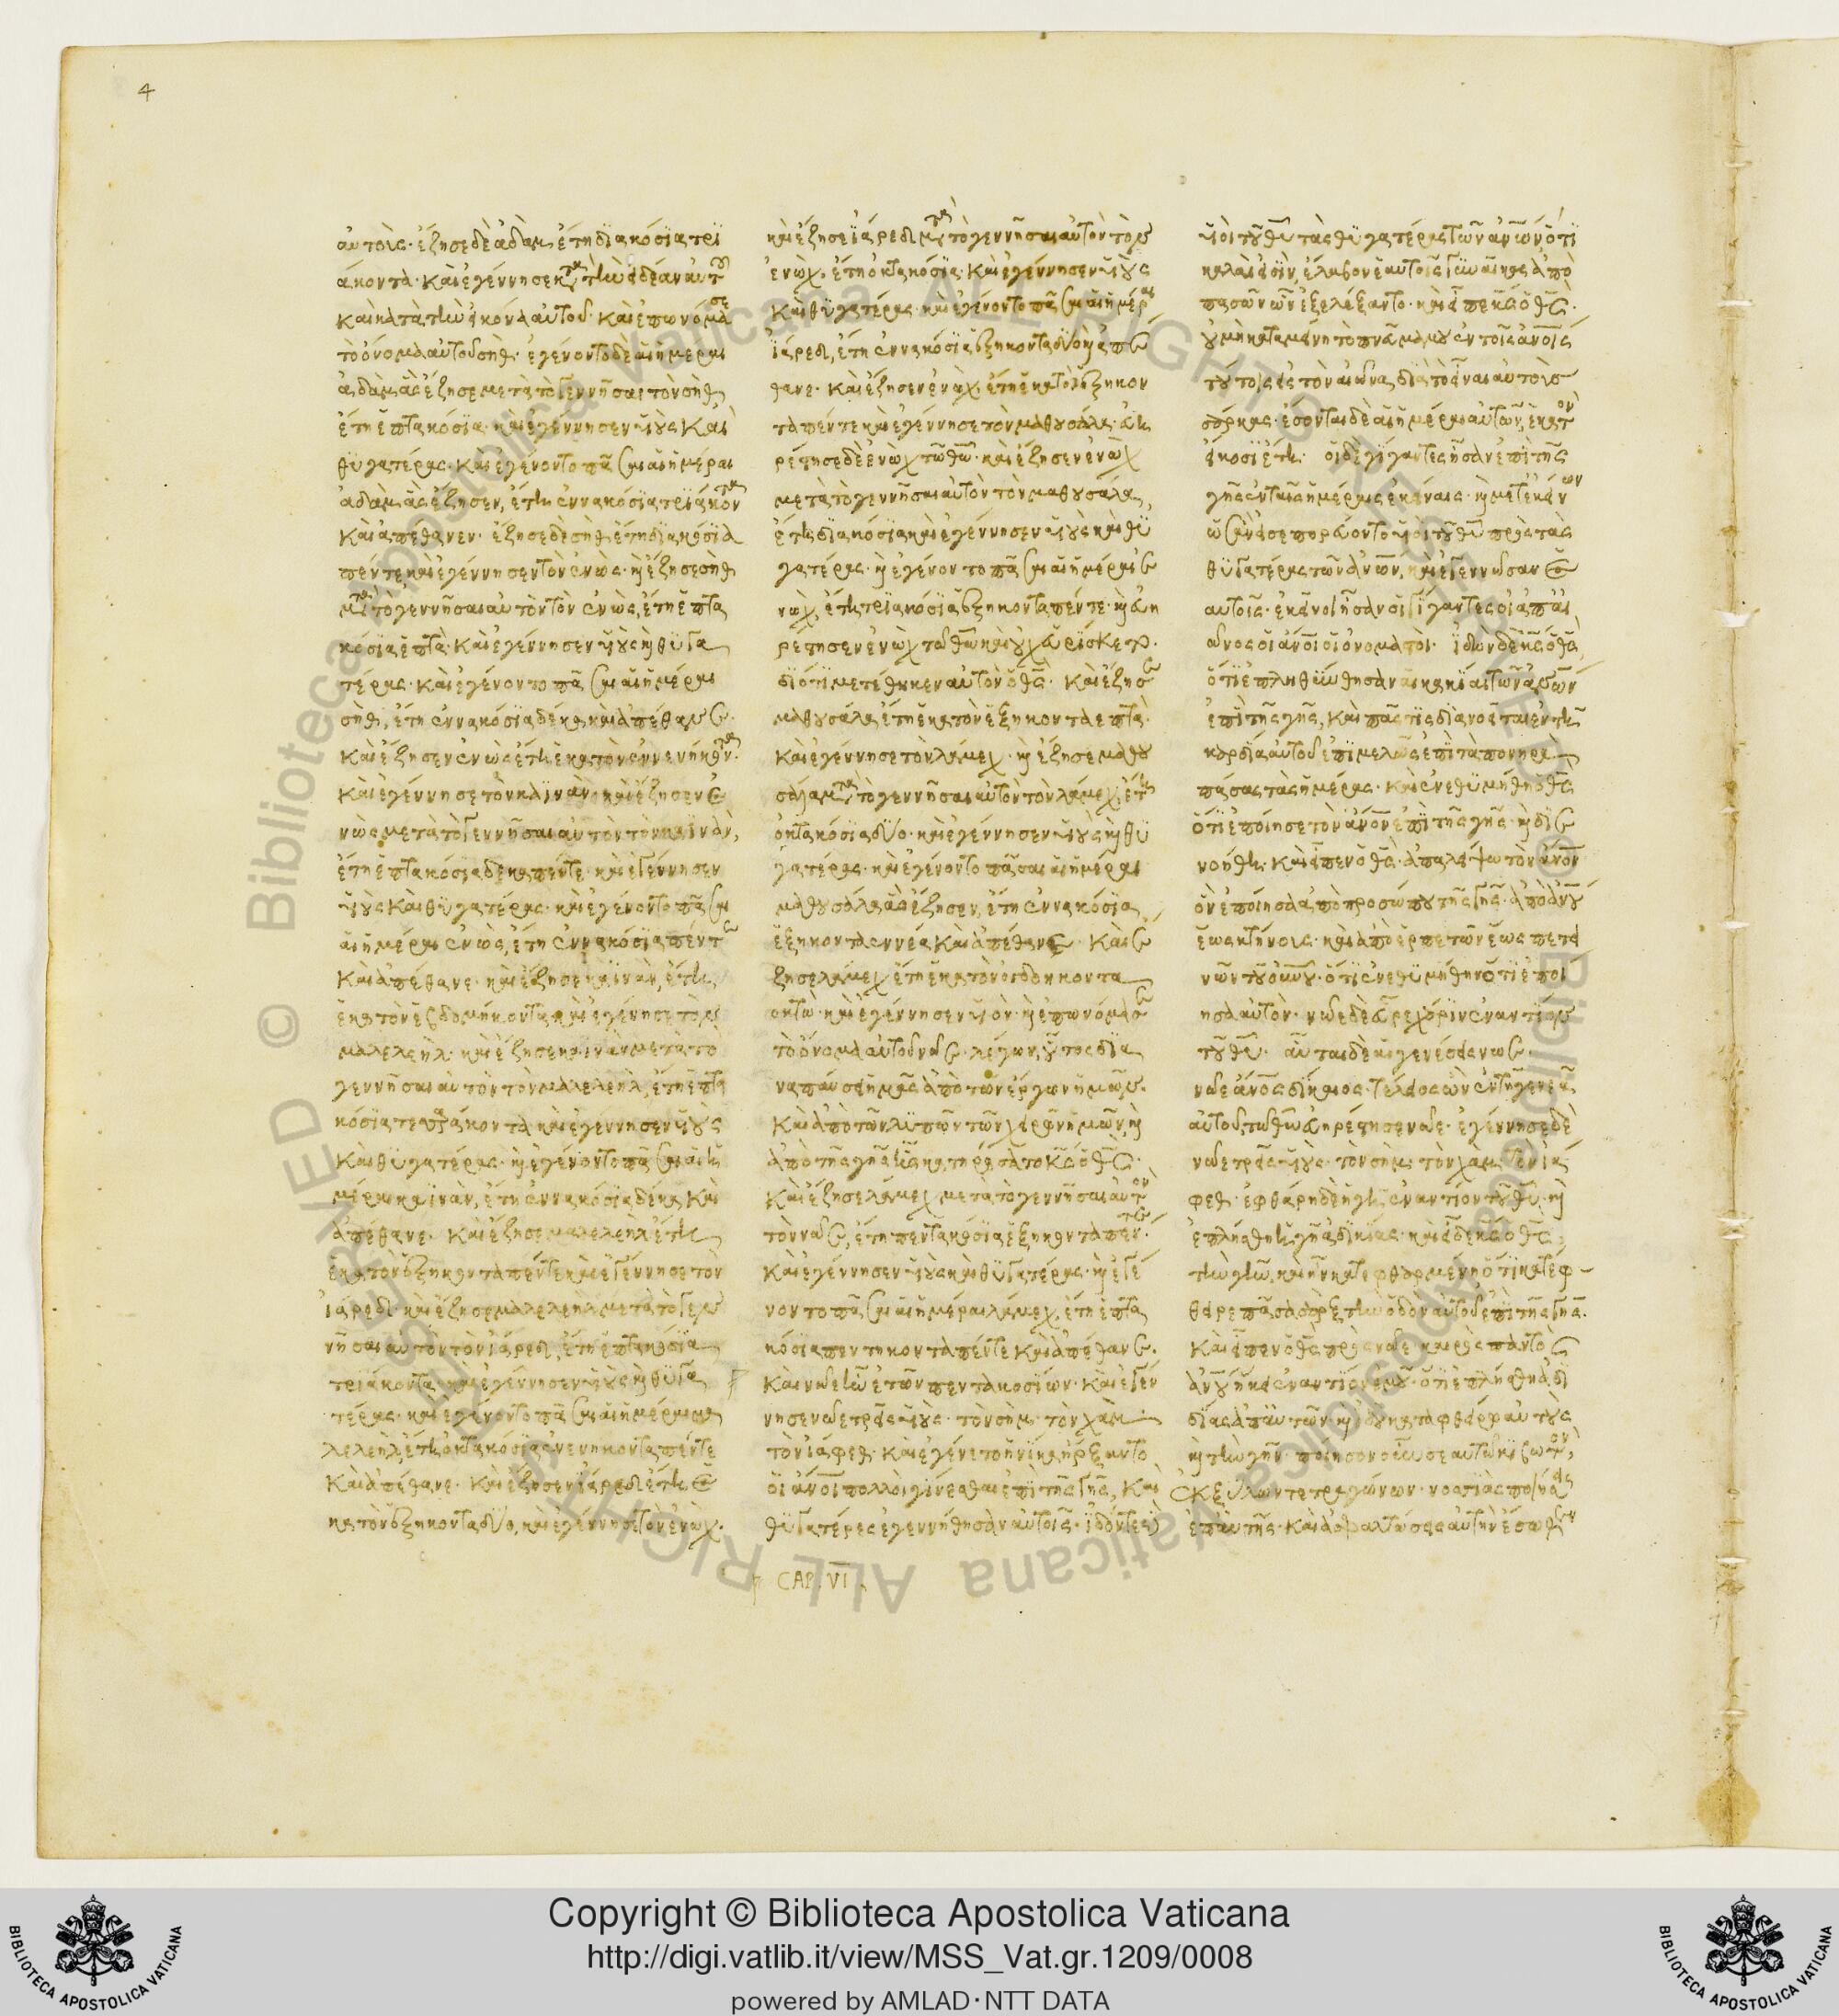 4
αὐτοῖς· ἔζησε δὲ ἀδὰμ, ἔτη διακόσια τρι
άκοντα· καὶ ἐγέννησε κατὰ τὴν ἰδέαν αὐτοῦ
καὶ κατὰ τὴν εἰκόνα αὐτοῦ· καὶ ἐπωνόμασε
τὸ ὄνομα αὐτοῦ σήθ· ἐγένοντο δὲ αἱ ἡμέραι
ἀδὰμ ἃς ἔζησε μετὰ τὸ γεννῆσαι τὸν σὴθ
ἔτη ἑπτακόσια· καὶ ἐγέννησεν υἱοὺς καὶ
θυγατέρας· καὶ ἐγένοντο πᾶσαι αἱ ἡμέραι
ἀδὰμ ἃς ἔζησεν, ἔτη ἐννακόσια τριάκοντα
καὶ ἀπέθανεν· ἔζησε δὲ σὴθ ἔτη διακόσια
πέντε καὶ ἐγέννησεν τὸν ἐνώς· καὶ ἔζησε σὴθ
μετὰ τὸ γεννῆσαι αὐτὸν τὸν ἐνὼς, ἔτη ἑπτα
κόσια ἑπτὰ· καὶ ἐγέννησεν υἱοὺς καὶ θυγα
τέρας· καὶ ἐγένοντο πᾶσαι αἱ ἡμέραι
σὴθ, ἔτη ἐννακόσια δέκα, καὶ ἀπέθανεν·
καὶ ἔζησεν ἐνὼς ἔτη ἑκατὸν ἐνενήκοντα·
καὶ ἐγέννησε τὸν καϊνὰν· καὶ ἔζησεν ἐ
νὼς μετὰ τὸ γεννῆσαι αὐτὸν τὸν καϊνὰν,
ἔτη ἑπτακόσια δεκαπέντε· καὶ ἐγέννησεν
υἱοὺς καὶ θυγατέρας· καὶ ἐγένοντο πᾶσαι
αἱ ἡμέραι ἐνὼς, ἔτη ἐννακόσια πέντε
καὶ ἀπέθανε· καὶ ἔζησε καϊνὰν, ἔτη
ἑκατὸν ἑβδομήκοντα, καὶ ἐγέννησε τὸν
μαλελεήλ· καὶ ἔζησε καϊνὰν μετὰ τὸ
γεννῆσαι αὐτὸν τὸν μαλελεὴλ, ἔτη ἑπτα
κόσια τεσσαράκοντα καὶ ἐγέννησεν υἱοὺς
καὶ θυγατέρας· καὶ ἐγένοντο πᾶσαι αἱ ἡ
μέραι καϊνὰν, ἔτη ἐννακόσια δέκα, καὶ
ἀπέθανε· καὶ ἔζησε μαλελεὴλ ἔτη
ἑκατὸν ἑξήκοντα πέντε καὶ ἐγέννησε τὸν
ἰάρεδ· καὶ ἔζησε μαλελεὴλ μετὰ τὸ γεν
νῆσαι αὐτὸν τὸν ἰάρεδ, ἔτη ἑπτακόσια
τριάκοντα, καὶ ἐγέννησεν υἱοὺς καὶ θυγα
τέρας· καὶ ἐγένοντο πᾶσαι αἱ ἡμέραι μα
λελεὴλ, ἔτη ὀκτακόσια ἐνενήκοντα πέντε
καὶ ἀπέθανε· καὶ ἔζησεν ἰάρεδ ἔτη ἑ
κατὸν ἑξήκοντα δύο, καὶ ἐγέννησε τὸν ἐνώχ·
καὶ ἔζησε ἰάρεδ μετὰ τὸ γεννῆσαι αὐτὸν τὸν
ἐνὼχ, ἔτη ὀκτακόσια· καὶ ἐγέννησεν υἱοὺς
καὶ θυγατέρας· καὶ ἐγένοντο πᾶσαι αἱ ἡμέραι
ἰάρεδ, ἔτη ἐννακόσια ἑξήκοντα δύο καὶ ἀπέ
θανε· καὶ ἔζησεν ἐνὼχ ἔτη ἑκατὸν ἑξήκον
τα πέντε καὶ ἐγέννησε τὸν μαθουσάλα· εὐη
ρέστησε δὲ ἐνὼχ τῷ θῷ· καὶ ἔζησεν ἐνὼχ
μετὰ τὸ γεννῆσαι αὐτὸν τὸν μαθουσάλα,
ἔτη διακόσια καὶ ἐγέννησεν υἱοὺς καὶ θυ
γατέρας· καὶ ἐγένοντο πᾶσαι αἱ ἡμέραι ἐ
νὼχ, ἔτη τριακόσια ἑξήκοντα πέντε· καὶ εὐη
ρέστησεν ἐνὼχ τῷ θῷ καὶ οὐχ εὑρίσκετο·
διότι μετέθηκεν αὐτὸν ὁ θς· καὶ ἔζησε
μαθουσάλα ἔτη ἑκατὸν ἑξήκοντα ἑπτὰ·
καὶ ἐγέννησε τὸν λάμεχ· καὶ ἔζησε μαθου
σάλα μετὰ τὸ γεννῆσαι αὐτὸν τὸν λάμεχ, ἔτη
ὀκτακόσια δύο· καὶ ἐγέννησεν υἱοὺς καὶ θυ
γατέρας· καὶ ἐγένοντο πᾶσαι αἱ ἡμέραι
μαθουσάλα ἃς ἔζησεν, ἔτη ἐννακόσια
ἑξήκοντα ἐννέα καὶ ἀπέθανεν· καὶ ἔ
ζησε λάμεχ ἔτη ἑκατὸν ὀγδοήκοντα
ὀκτὼ· καὶ ἐγέννησεν υἱόν· καὶ ἐπωνόμασε
τὸ ὄνομα αὐτοῦ νῶε· λέγων, οὗτος δια
ναπαύσει ἡμᾶς ἀπὸ τῶν ἔργων ἡμῶν·
καὶ ἀπὸ τῶν λυπῶν τῶν χειρῶν ἡμῶν, καὶ
ἀπὸ τῆς γῆς ἧς κατηράσατο κς ὁ θς·
καὶ ἔζησε λάμεχ μετὰ τὸ γεννῆσαι αὐτὸν
τὸν νῶε, ἔτη πεντακόσια ἑξήκοντα πέντε·
καὶ ἐγέννησεν υἱοὺς καὶ θυγατέρας· καὶ ἐγέ
νοντο πᾶσαι αἱ ἡμέραι λάμεχ, ἔτη ἑπτα
κόσια πεντήκοντα πέντε καὶ ἀπέθανεν·
καὶ νῶε ἦν ἐτῶν πεντακοσίων· καὶ ἐγέν
νησε νῶε τρεῖς υἱοὺς· τὸν σὴμ· τὸν χὰμ
τὸν ἰάφεθ· καὶ ἐγένετο ἡνίκα ἤρξαντο
οἱ ἄνοι πολλοὶ γίνεσθαι ἐπὶ τῆς γῆς, καὶ
θυγατέρες ἐγεννήθησαν αὐτοῖς· ἰδόντες δὲ
CAP. VI
υἱοὶ τοῦ θυ τὰς θυγατέρας τῶν ἀνων, ὅτι
καλαί εἰσιν, ἔλαβον ἑαυτοῖς γυναῖκας ἀπὸ
πασῶν ὧν ἐξελέξαντο· καὶ εἶπε κς ὁ θς·
οὐ μὴ καταμείνῃ τὸ πνεῦμά μου ἐν τοῖς ἀνοις
τούτοις εἰς τὸν αἰῶνα, διὰ τὸ εἶναι αὐτοὺς
σάρκας· ἔσονται δὲ αἱ ἡμέραι αὐτῶν, ἑκατὸν
εἴκοσι ἔτη· οἱ δὲ γίγαντες ἦσαν ἐπὶ τῆς
γῆς ἐν ταῖς ἡμέραις ἐκείναις· καὶ μετ ἐκεῖνο
ὡς ἂν εἰσεπορεύοντο υἱοὶ τοῦ θυ πρὸς τὰς
θυγατέρας τῶν ἀνων, καὶ ἐγεννῶσαν ἑ
αυτοῖς· ἐκεῖνοι ἦσαν οἱ γίγαντες οἱ ἀπ αἰ
ῶνος οἱ ἄνοι οἱ ὀνομαστοί· ἰδὼν δὲ κς ὁ θς,
ὅτι ἐπληθύνθησαν αἱ κακίαι τῶν ἀνων
ἐπὶ τῆς γῆς, καὶ πᾶς τις διανοεῖται ἐν τῇ
καρδίᾳ αὐτοῦ ἐπιμελῶς ἐπὶ τὰ πονηρὰ
πάσας τὰς ἡμέρας· καὶ ἐνεθυμήθη ὁ θς
ὅτι ἐποίησε τὸν ἄνον ἐπὶ τῆς γῆς· καὶ διε
νοήθη· καὶ εἶπεν ὁ θς· ἀπαλείψω τὸν ἄνον
ὃν ἐποίησα ἀπὸ προσώπου τῆς γῆς· ἀπὸ ἀνου
ἕως κτήνους· καὶ ἀπὸ ἑρπετῶν ἕως πετει
νῶν τοῦ οὐνου· ὅτι ἐνεθυμήθην ὅτι ἐποί
ησα αὐτόν· νῶε δὲ εὗρε χάριν ἐναντίον
τοῦ θυ· αὗται δὲ αἱ γενέσεις νῶε·
νῶε ἄνος δίκαιος· τέλειος ὢν ἐν τῇ γενεᾷ
αὐτοῦ, τῷ θῷ εὐηρέστησε νῶε· ἐγέννησε δὲ
νῶε τρεῖς υἱοὺς· τὸν σὴμ· τὸν χὰμ· τὸν ἰά
φεθ· ἐφθάρη δὲ ἡ γῆ ἐναντίον τοῦ θυ· καὶ
ἐπλήσθη ἡ γῆ ἀδικίας· καὶ εἶδε κς ὁ θς
τὴν γῆν, καὶ ἦν κατεφθαρμένη· ὅτι κατέφ
θειρε πᾶσα σὰρξ τὴν ὁδὸν αὐτοῦ ἐπὶ τῆς γῆς·
καὶ εἶπεν ὁ θς πρὸς νῶε· καιρὸς παντὸς
ἀνου ἥκει ἐναντίον ἐμοῦ· ὅτι ἐπλήσθη ἡ γῆ ἀδι
κίας ἀπ αὐτῶν· καὶ ἰδοὺ καταφθείρω αὐτοὺς
καὶ τὴν γῆν· ποίησον οὖν σεαυτῷ κιβωτὸν,
ἐκ ξύλων τετραγώνων· νοσσιὰς ποιήσεις
ἐπ αὐτῆς· καὶ ἀσφαλτώσεις αὐτὴν ἔσωθεν
Copyright © Biblioteca Apostolica Vaticana
http://digi.vatlib.it/view/MSS_Vat.gr.1209/0008
powered by AMLAD·NTT DATA
BIBLIOTECA APOSTOLICA VATICANA
BIBLIOTECA APOSTOLICA VATICANA